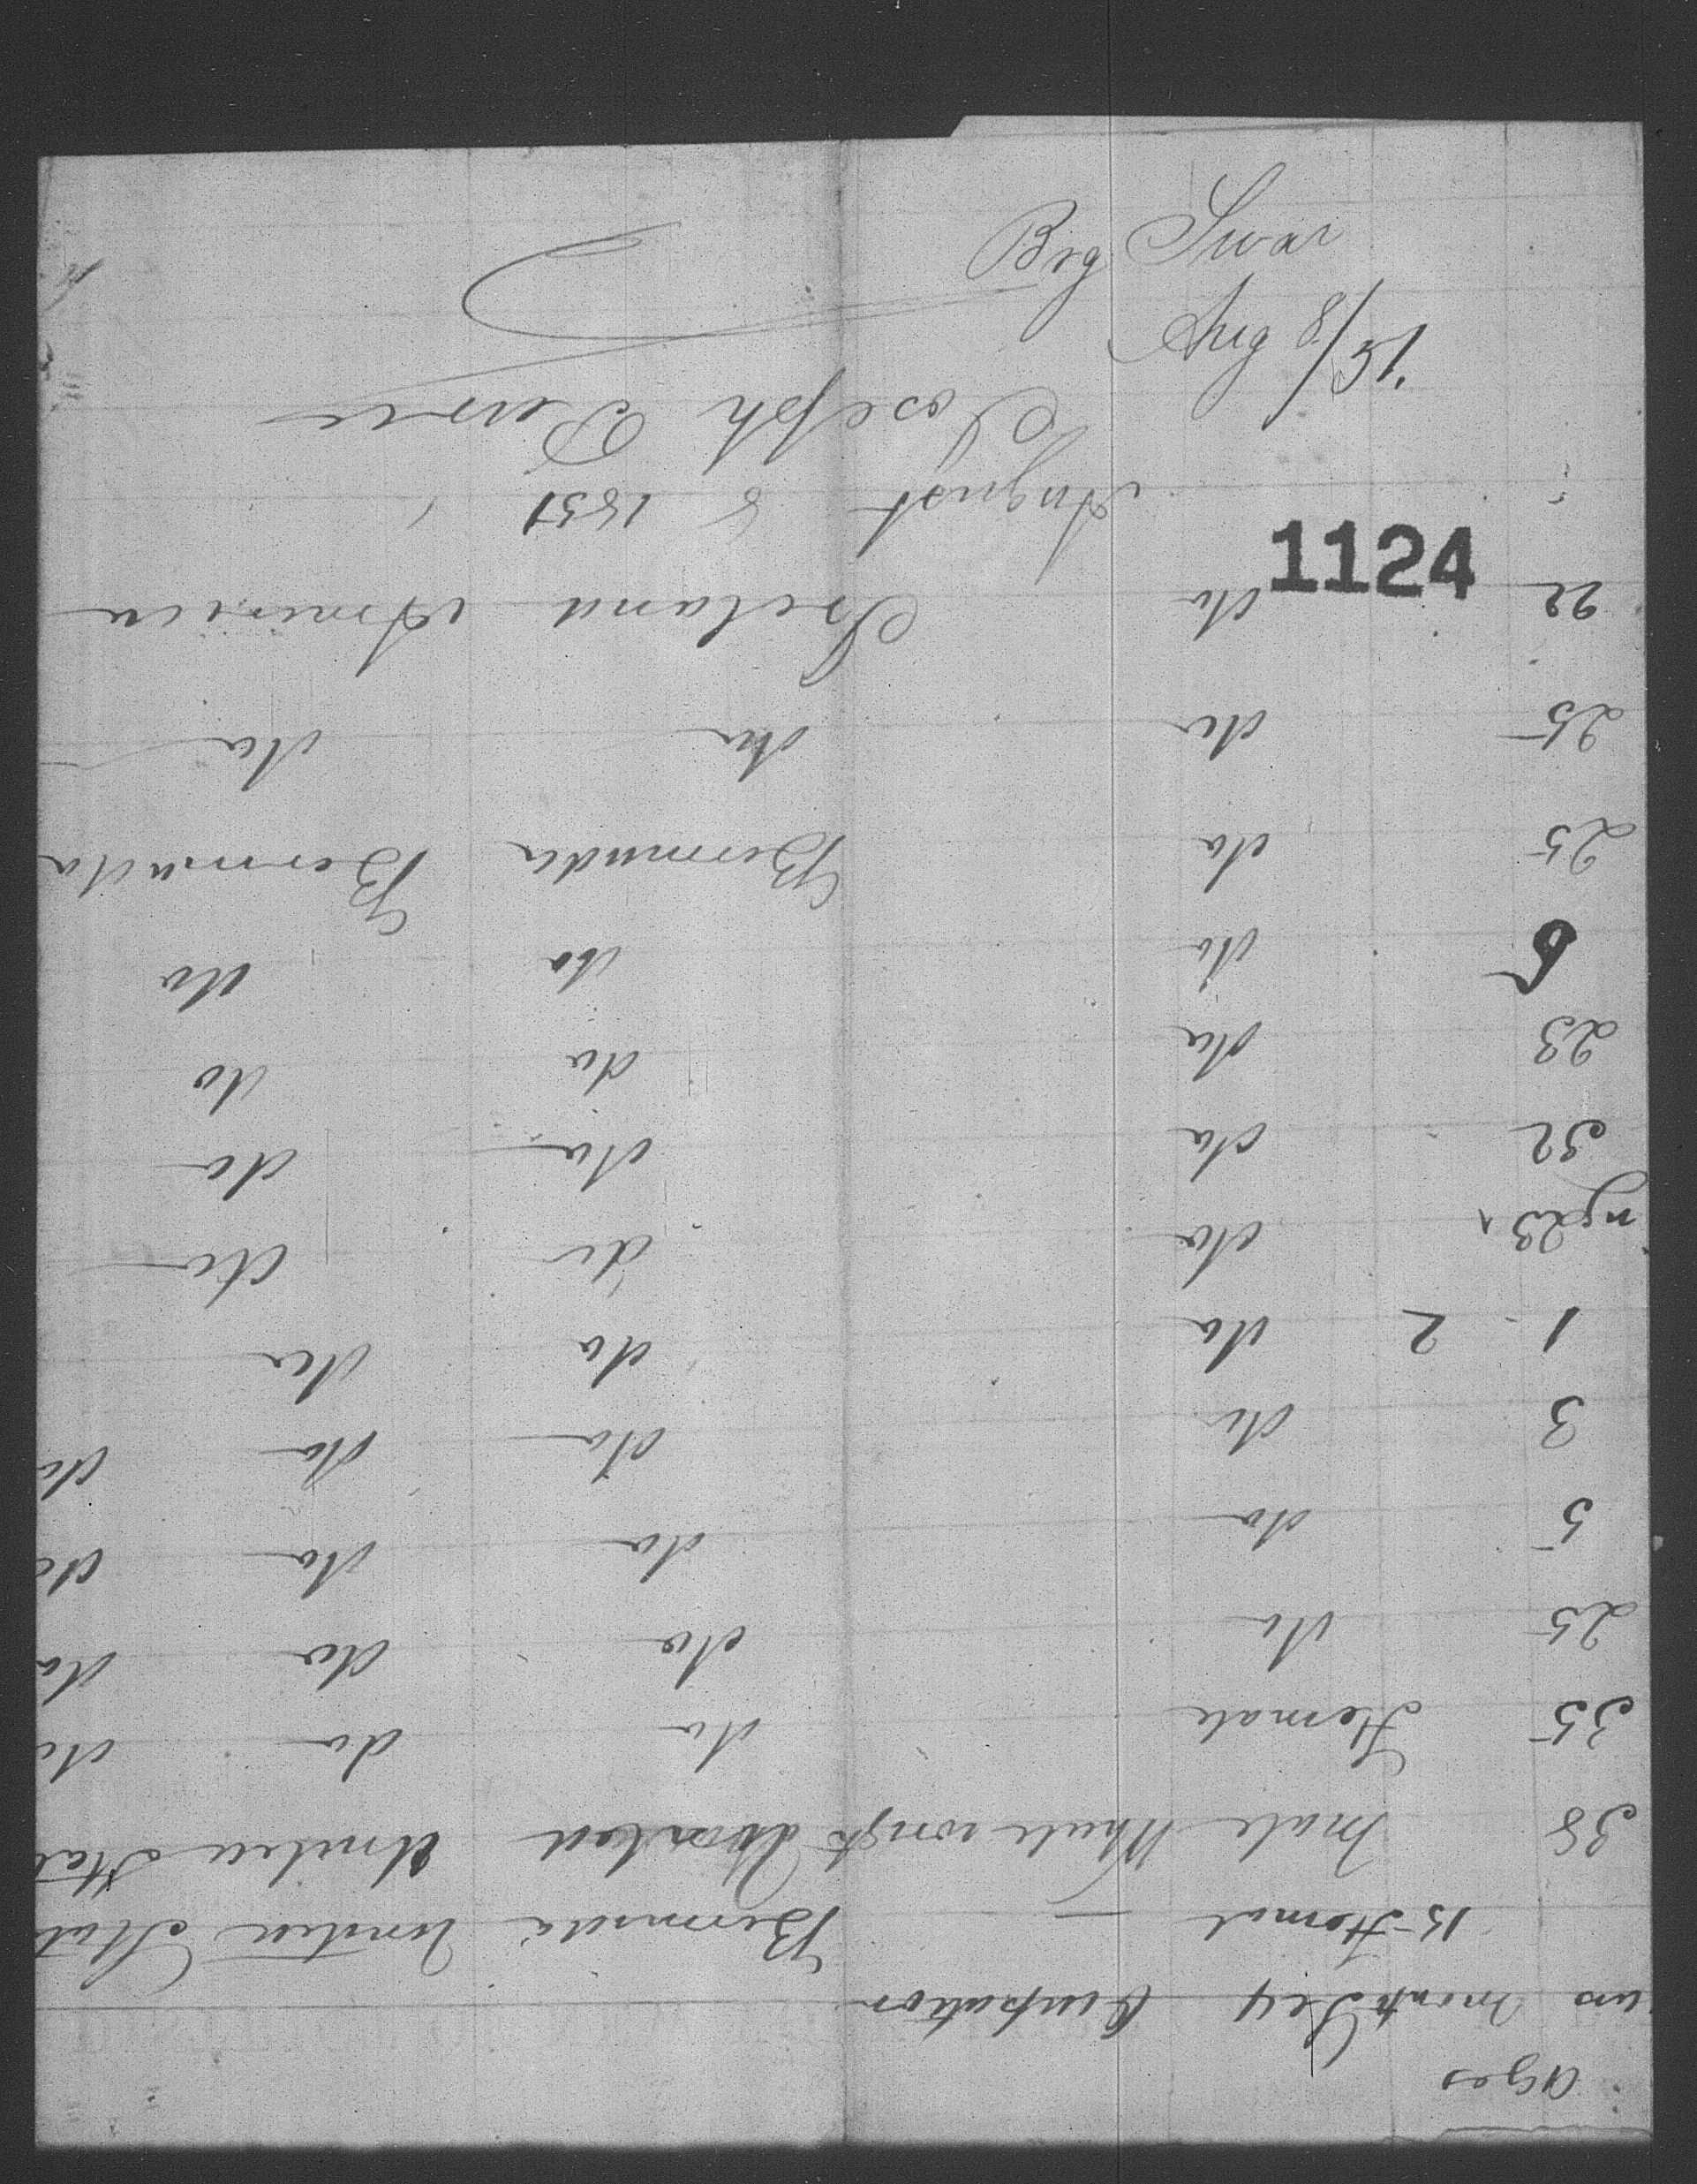 Brig Swan
Aug 8/51
1124
ages
months Sex Occupation
15 Femal — Bermuda United Stat
38 Male Wheelwright United Stat
35 Female do do do
25 do do do do
5 do do do do
3 do do do do
1 2 do do do
23 do do do
32 do do do
23 do do do
6 do do do
25 do Bermuda Bermuda
25 do do do
22 do Ireland America
August 8 1851
Joseph